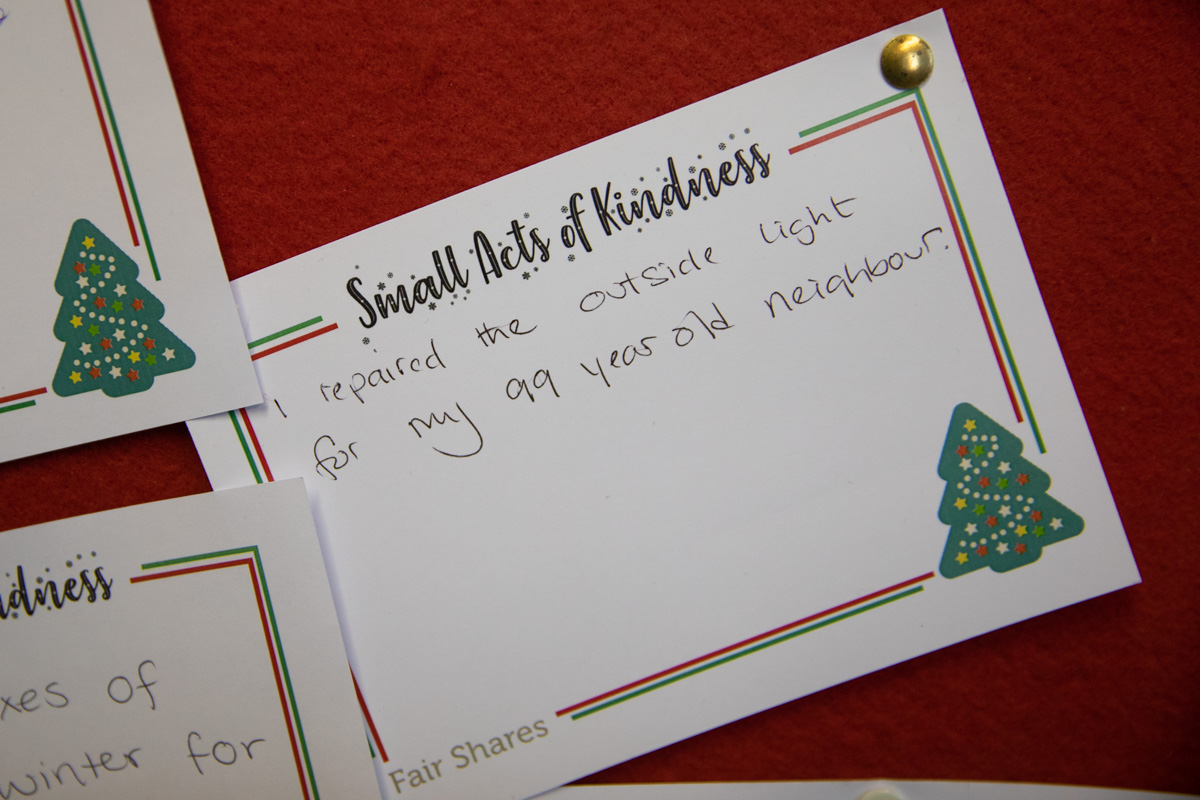 Small Acts of Kindness
I repaired the outside light
for my 99 year old neighbour.
Fair Shares
xes of
winter for